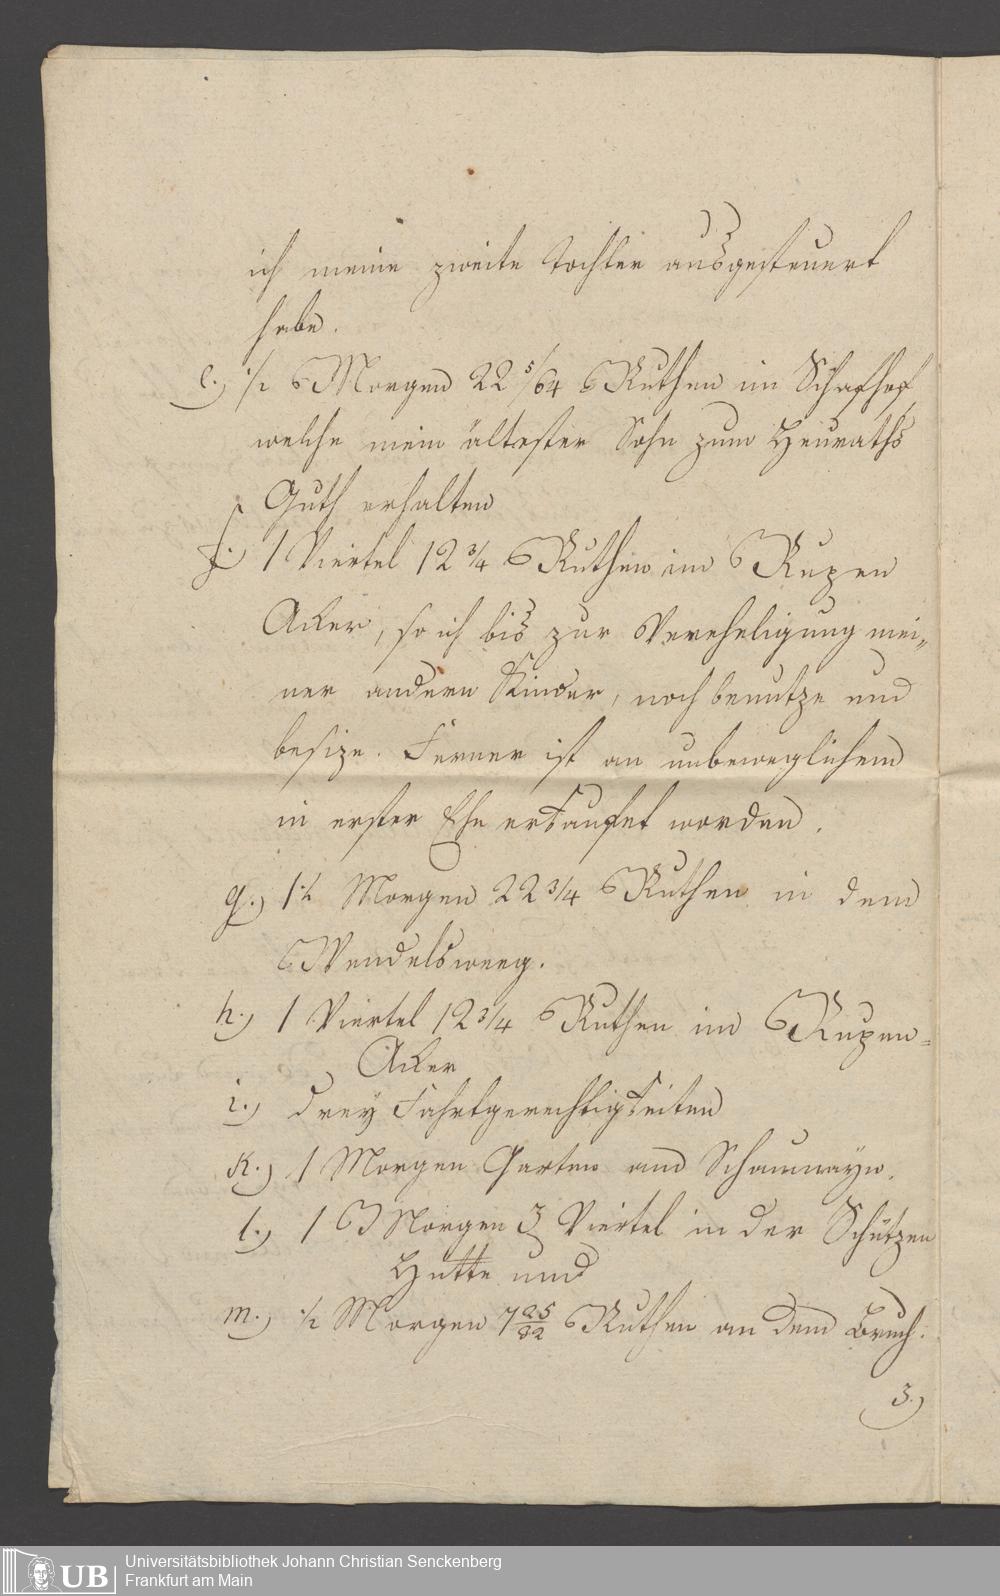 ich meine zweite Tochter ausgesteuert
habe.
e.) ½ Morgen 22 5/64 Ruthen im Schafhof,
welche mein ältester Sohn zum Heuraths
Guth erhalten
f.) 1 Viertel 12 3/4 Ruthen im Rupen
Acker, so ich bis zur Vereheligung mei„
ner andern Kinder, noch benutze und
besize. Ferner ist an unbeweglichem
in erster Ehe erkaufet worden.
g.) 1½ Morgen 22 3/4 Ruthen in dem
Wendelsweeg.
h.) 1 Viertel 12 3/4 Ruthen im Rupen=
Acker
i.) drey Fahrtgerechtigkeiten
K.) 1 Morgen Garten am Schaumayn.
l.) 1 Morgen 3 Viertel in der Schützen
Hütte und
m.) ½ Morgen 7 25/32 Ruthen an dem Bruch.
3.)
UB Universitätsbibliothek Johann Christian Senckenberg
Frankfurt am Main